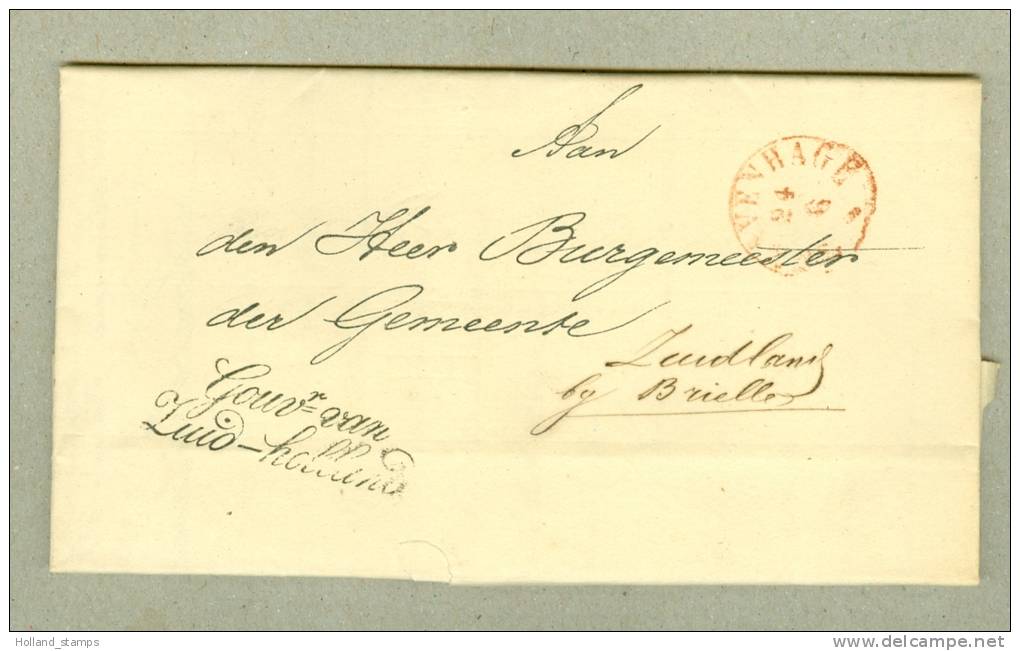 Aan
VENHAGE
24
9
den Heer Burgemeester
der Gemeente
Zuidland
by Brielle
Gouvr van
Zuid-holland
Holland_stamps
www.delcampe.net